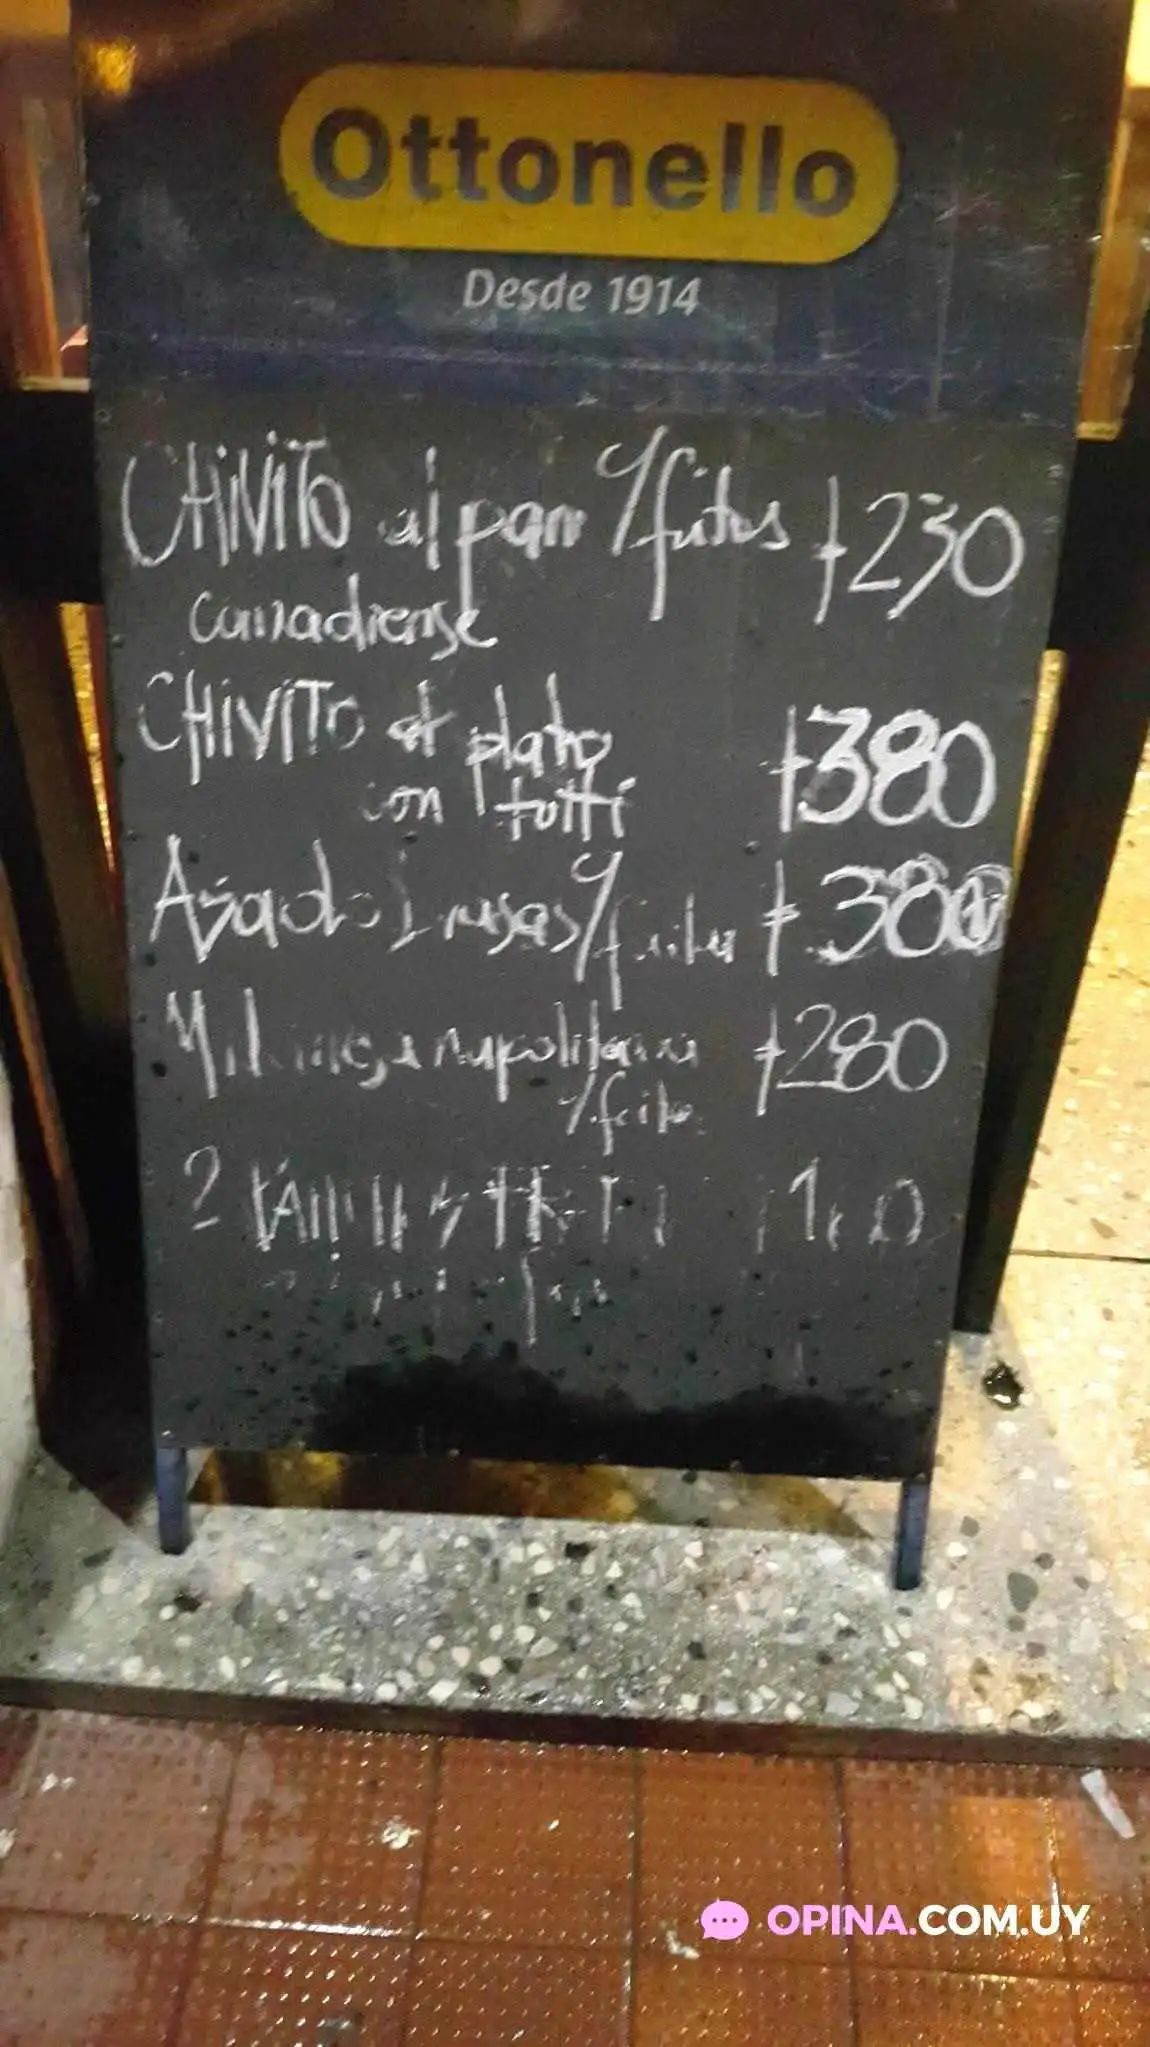 Ottonello
Desde 1914
CHiViTo al pan y/fritas $230
canadiense
CHiViTo al plato $380
con tutti
Asado 1 rusas y/fritas $380
Milanesa napolitana $280
y/frita
2
OPINA.COM.UY